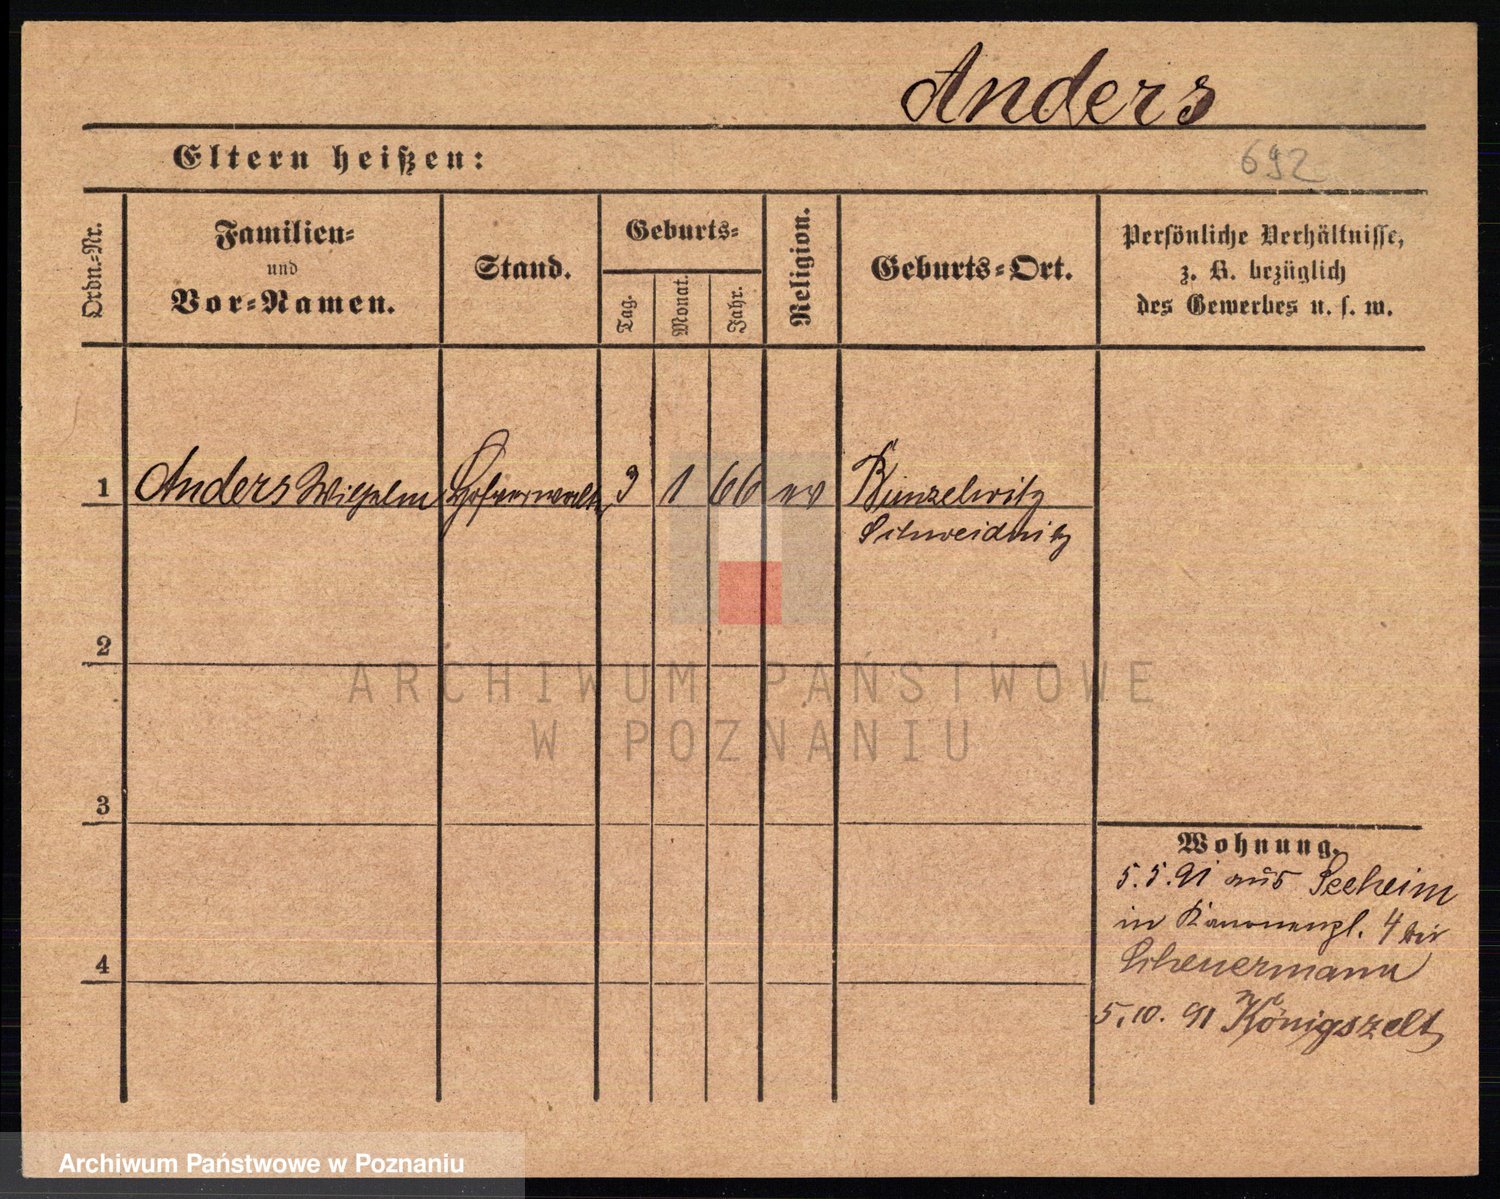 Anders
Eltern heißen:
692
Ordn.-Nr.
Familien-
und
Vor-Namen.
Stand.
Geburts-
Tag.
Monat.
Jahr.
Religion.
Geburts-Ort.
Persönliche Verhältnisse,
z. B. bezüglich
des Gewerbes u. s. w.
1 Anders Wilhelm Hofverwalter 3 1 66 ev Bunzelwitz
Schweidnitz
2
3
4
Wohnung.
5.5.91 aus Seeheim
in Kanonenpl. 4 bei
Scheuermann
5.10.91 n. Königszelt
ARCHIWUM PAŃSTWOWE
W POZNANIU
Archiwum Państwowe w Poznaniu